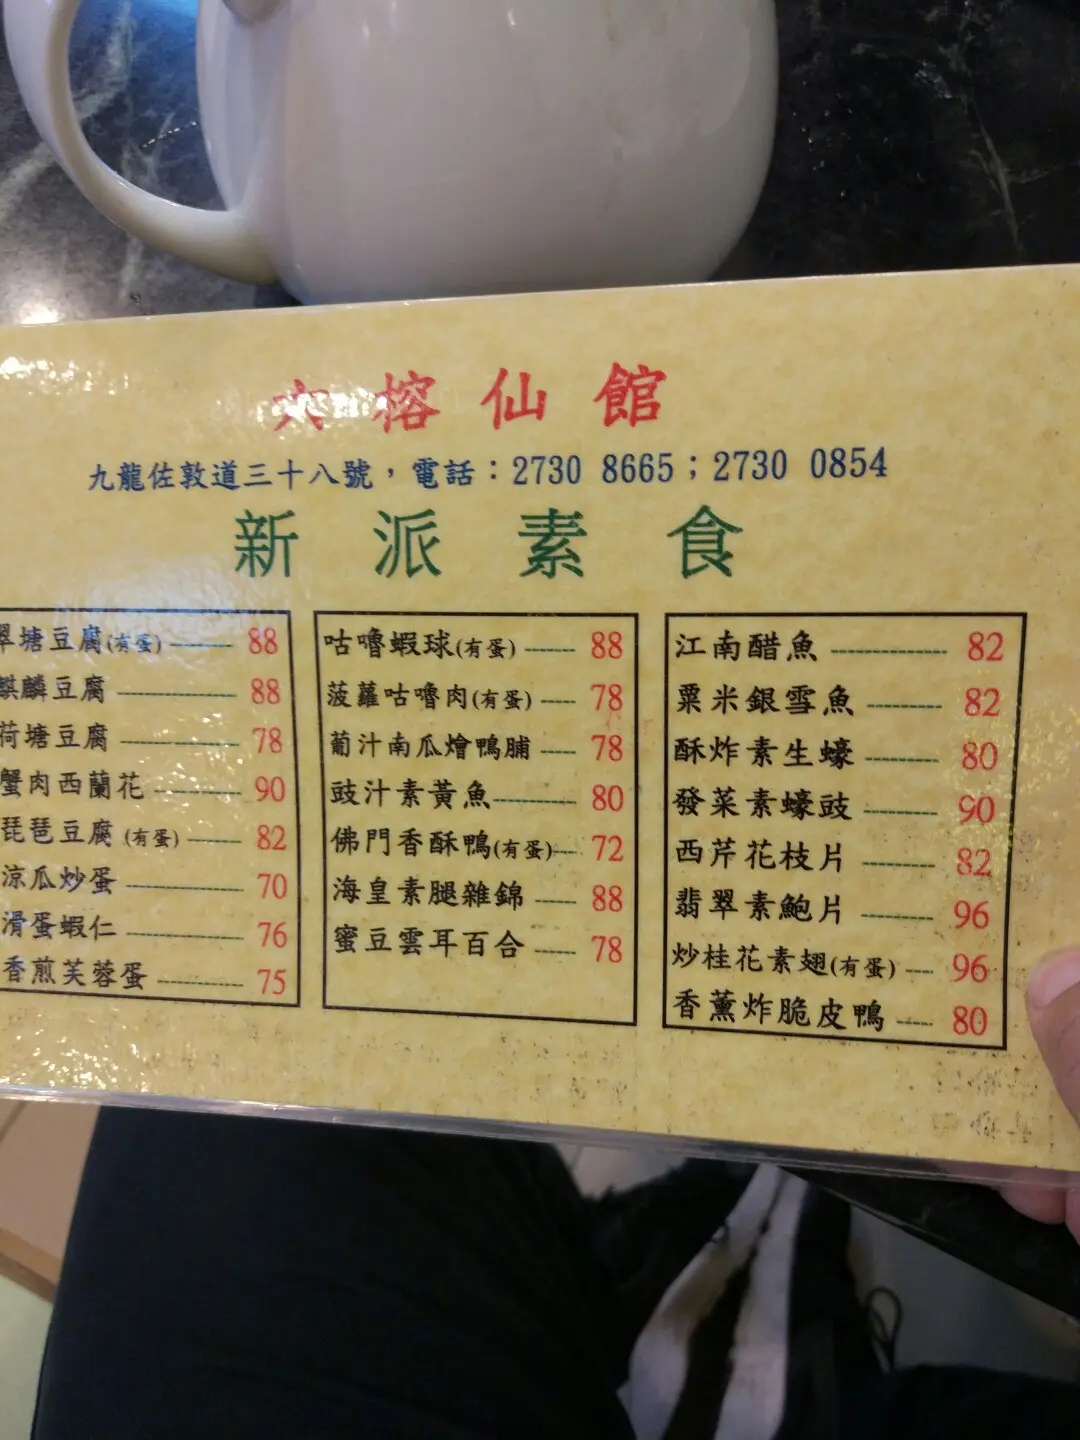 六榕仙館
九龍佐敦道三十八號，電話：2730 8665；2730 0854
新派素食
翠塘豆腐(有蛋) 88
麒麟豆腐 88
荷塘豆腐 78
蟹肉西蘭花 90
琵琶豆腐 (有蛋) 82
涼瓜炒蛋 70
滑蛋蝦仁 76
香煎芙蓉蛋 75
咕嚕蝦球(有蛋) 88
菠蘿咕嚕肉(有蛋) 78
葡汁南瓜燴鴨脯 78
豉汁素黃魚 80
佛門香酥鴨(有蛋) 72
海皇素腿雜錦 88
蜜豆雲耳百合 78
江南醋魚 82
粟米銀雪魚 82
酥炸素生蠔 80
發菜素蠔豉 90
西芹花枝片 82
翡翠素鮑片 96
炒桂花素翅(有蛋) 96
香薰炸脆皮鴨 80